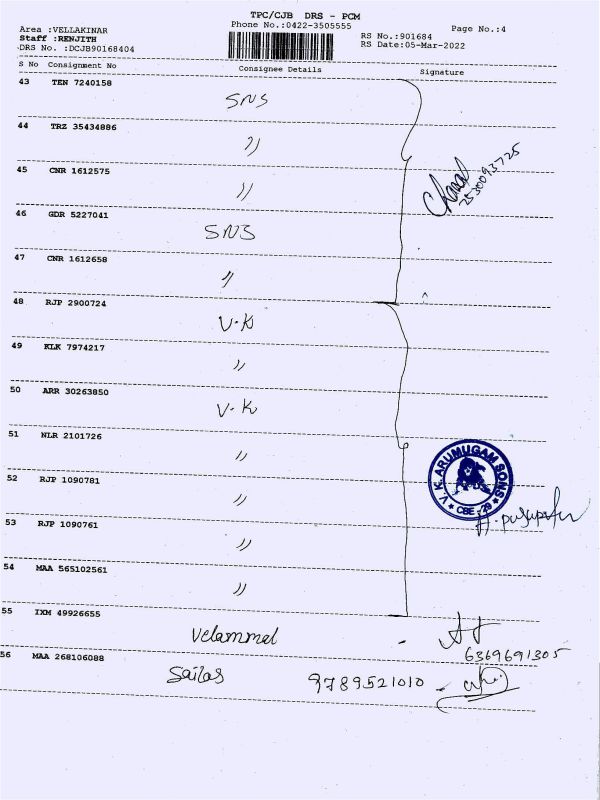 TPC/CJB DRS - PCM
Area :VELLAKINAR Phone No.:0422-3505555 Page No.:4
Staff :RENJITH RS No.:901684
DRS No. :DCJB90168404 RS Date:05-Mar-2022
S No Consignment No Consignee Details Signature
43 TEN 7240158
SNS
44 TRZ 35434886
"
45 CNR 1612575
"
46 GDR 5227041
SNS
47 CNR 1612658
"
48 RJP 2900724
V.K
49 KLK 7974217
"
50 ARR 30263850
V.K
51 NLR 2101726
"
52 RJP 1090781
"
53 RJP 1090761
"
54 MAA 565102561
"
V.K.ARUMUGAM SONS
CBE - 29
55 IXM 49926655
Velammal
6369691305
56 MAA 268106088
Sailas 9789521010